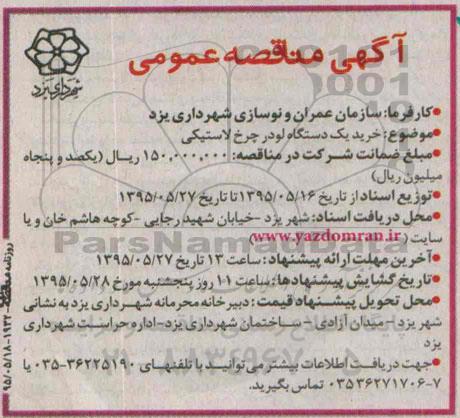 آگهی مناقصه عمومی
شهرداری یزد
●کارفرما: سازمان عمران و نوسازی شهرداری یزد
●موضوع: خرید یک دستگاه لودر چرخ لاستیکی
●مبلغ ضمانت شرکت در مناقصه: ۱۵۰,۰۰۰,۰۰۰ ریال (یکصد و پنجاه
میلیون ریال)
●توزیع اسناد از تاریخ ۱۳۹۵/۰۵/۱۶ تا تاریخ ۱۳۹۵/۰۵/۲۷
●محل دریافت اسناد: شهر یزد -خیابان شهید رجایی -کوچه هاشم خان و یا
سایت (www.yazdomran.ir)
●آخرین مهلت ارائه پیشنهاد: ساعت ۱۳ تاریخ ۱۳۹۵/۰۵/۲۷
●تاریخ گشایش پیشنهادها: ساعت ۱۱ روز پنجشنبه مورخ ۱۳۹۵/۰۵/۲۸
●محل تحویل پیشنهاد قیمت: دبیرخانه محرمانه شهرداری یزد به نشانی
شهر یزد -میدان آزادی - ساختمان شهرداری یزد-اداره حراست شهرداری
یزد
●جهت دریافت اطلاعات بیشتر می توانید با تلفنهای ۳۶۲۲۵۱۹۰-۰۳۵ یا
۷-۰۳۵۳۶۲۷۱۷۰۶ تماس بگیرید.
ParsNamad
۹۵/۰۵/۱۸-۱۹۳۲